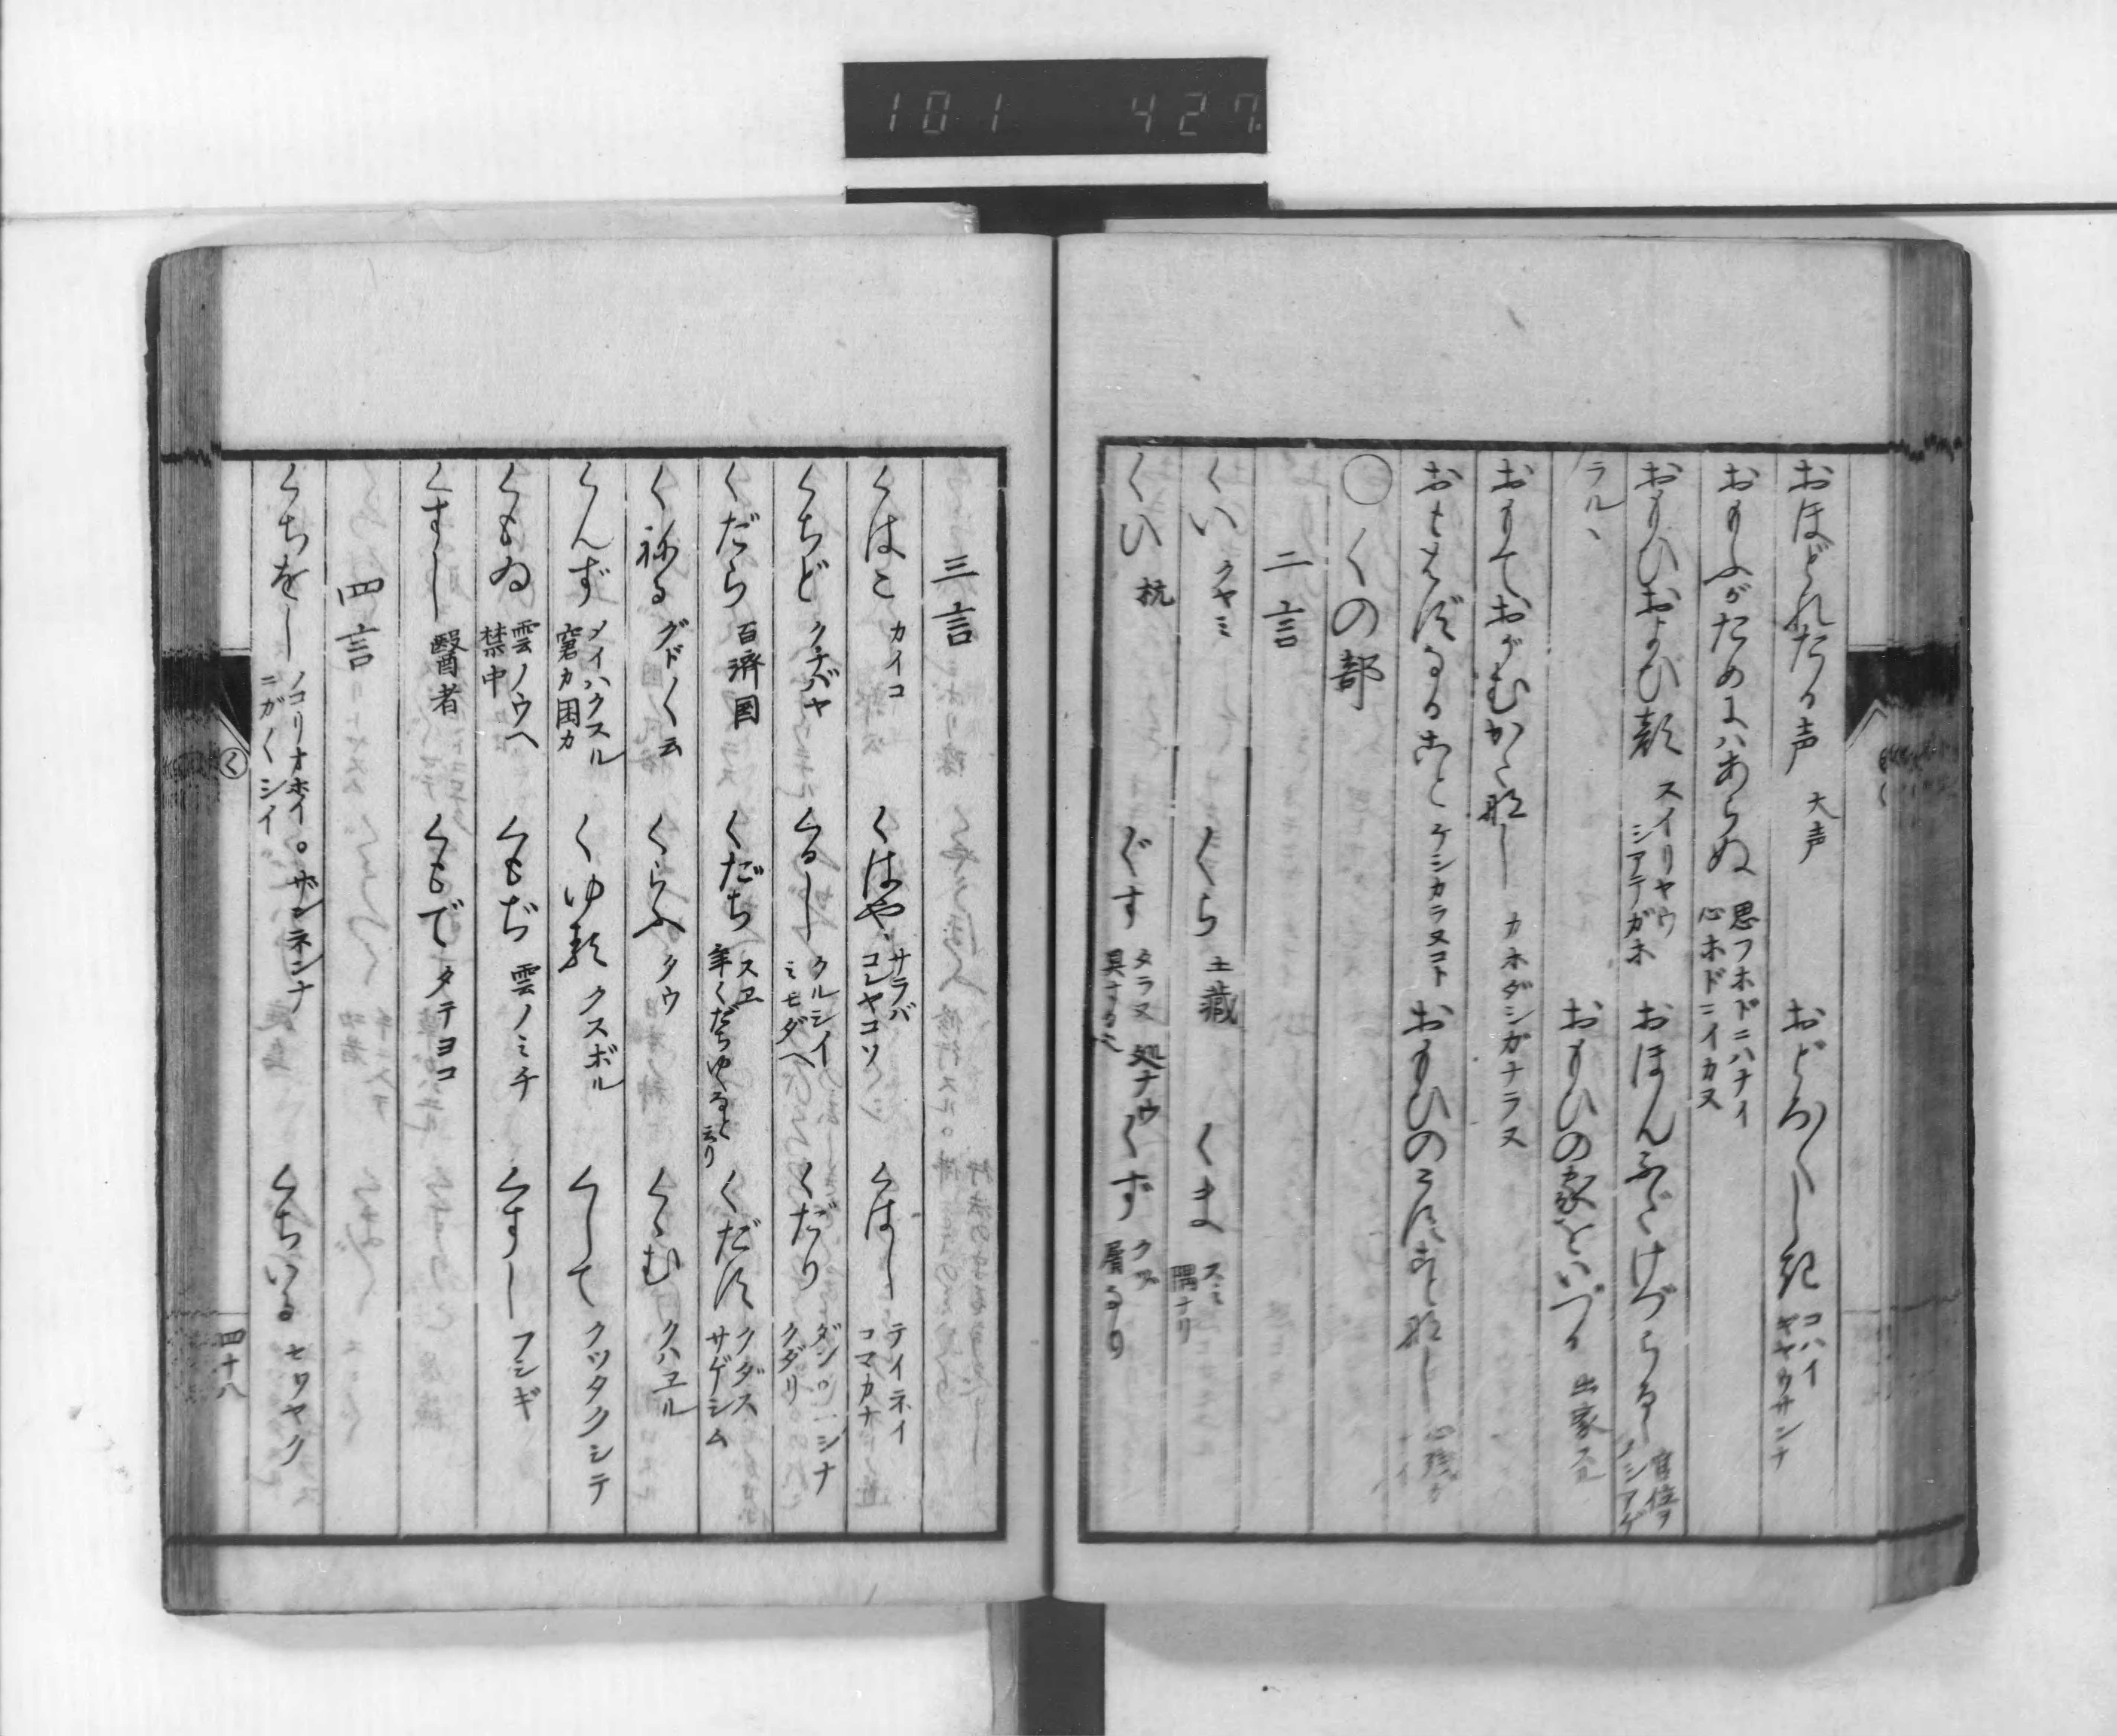 101 427
おほどれたる声 大声 おどろ〳〵しき コハイ ギヤウサンナ
おもふがためにハあらぬ 思フホドニハナイ 心ホドニイカヌ
おもひおよび顔 スイリヤウ シアテガホ おほんふだけづらる
ラルヽ おもひの家をいづる 出家スル
おもておがむかく カホダシガナラヌ
ケシカラヌコト おもひの
〇くの部
二言
くい クヤミ くら 土蔵 くま スミ 隅ナリ
くひ 杭 ぐす くず クヅ 屑なり
三言
くはこ カイコ くはや サラバ コレヤコソ くはし テイネイ コマカナ
くちど クチバヤ くるし クルシイ ミモダヘ くだり クダリ
くだら 百済国 くだち スヱ くだす クダス サゲシム
くねる グド〳〵云 くらふ クウ くゝむ クハヱル
くんず メイハクスル 窘カ困カ くゆる クスボル くして クツタクシテ
くもゐ 雲ノウヘ 禁中 くもぢ 雲ノミチ くすし フシギ
くすし 醫者 くもで タテヨコ
四言
くちをし ノコリオホイ。ザンネンナ ニガ〳〵シイ くちいる セワヤク
く
四十八